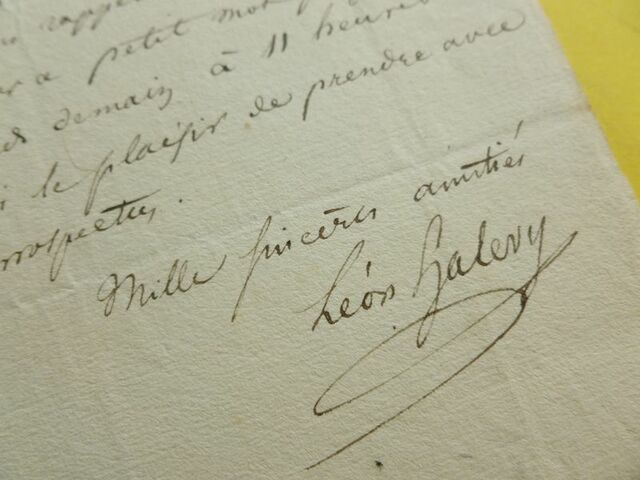 petit mot
demain à 11 heures
le plaisir de prendre avec
prospectus.
Mille sincères amitiés
Léon Halevy